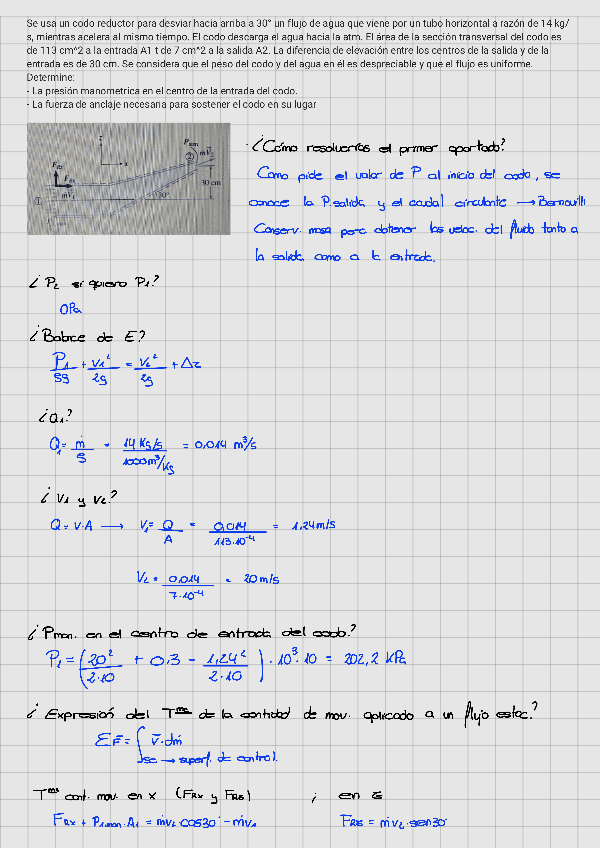 Se usa un codo reductor para desviar hacia arriba a 30° un flujo de agua que viene por un tubo horizontal a razón de 14 kg/
s, mientras acelera al mismo tiempo. El codo descarga el agua hacia la atm. El área de la sección transversal del codo es
de 113 cm^2 a la entrada A1 t de 7 cm^2 a la salida A2. La diferencia de elevación entre los centros de la salida y de la
entrada es de 30 cm. Se considera que el peso del codo y del agua en él es despreciable y que el flujo es uniforme.
Determine:
- La presión manometrica en el centro de la entrada del codo.
- La fuerza de anclaje necesaria para sostener el codo en su lugar
Patm
② ṁV⃗₂
z
x
FRz
FRx
30 cm
30°
① ṁV⃗₁
¿Cómo resolverías el primer apartado?
Como pide el valor de P al inicio del codo, se
conoce la P salida y el caudal circulante → Bernouilli
Conserv. masa para obtener las veloc. del fluido tanto a
la salida como a la entrada.
¿P₂ si quiero P₁?
0Pa
¿Balance de E?
P₁/ρg + V₁²/2g = V₂²/2g + Δz
¿Q₁?
Q₁= ṁ/ρ = 14 Kg/s / 1000m³/Kg = 0,014 m³/s
¿V₁ y V₂?
Q = V·A → V₁= Q/A = 0,014/113·10⁻⁴ = 1,24m/s
V₂ = 0,014/7·10⁻⁴ = 20m/s
¿Pman. en el centro de entrada del codo?
P₁ = (20²/2·10 + 0,3 - 1,24²/2·10) · 10³·10 = 202,2 KPa
¿Expresión del Tᵐᵃ de la cantidad de mov. aplicado a un flujo estac.?
ΣF̄ = ∫sc v̄·dṁ
sc → superf. de control.
Tᵐᵃ cant. mov. en x (FRx y FRz) ; en z
FRx + P₁man·A₁ = ṁv₂·cos30 - ṁv₁ FRz = ṁv₂·sen30